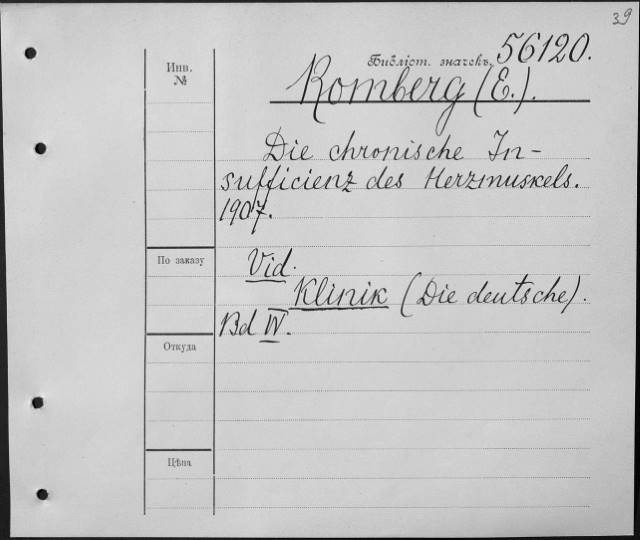 39
Инв.
№
Библіот. значекъ 56120.
Romberg (E.).
Die chronische In-
sufficienz des Herzmuskels.
1907.
По заказу
Vid.
Klinik (Die deutsche).
Bd IV.
Откуда
Цѣна